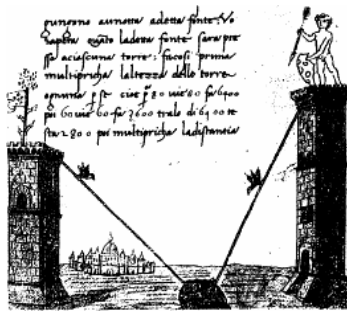 pungono aunotta adetta fonte. Vo
sapere quāto ladetta fonte sara pre
ssa aciascuna torre. facosi prima
multipricha laltezza delle torre
ognuna p se cioe p 80 uie 80 fa 6400
poi 60 uie 60 fa 3600 tralo di 6400 re
sta 2800 poi multipricha ladistantia